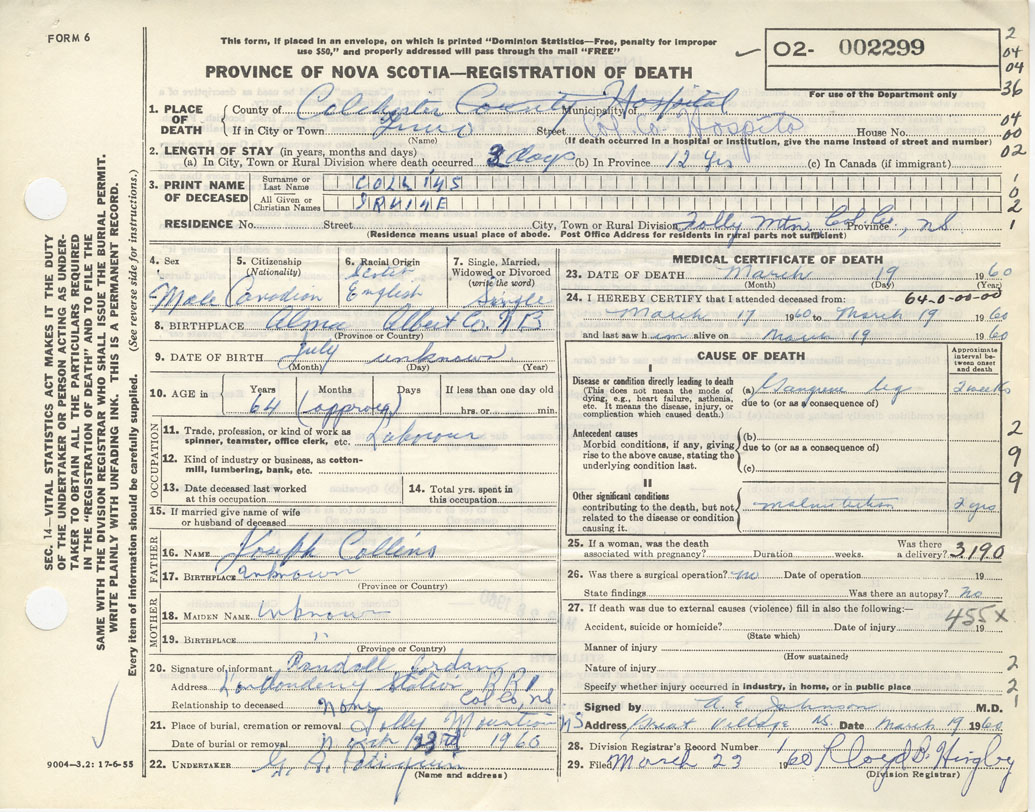 FORM 6
This form, if placed in an envelope, on which is printed "Dominion Statistics—Free, penalty for improper
use $50," and properly addressed will pass through the mail "FREE"
O2- 002299
PROVINCE OF NOVA SCOTIA—REGISTRATION OF DEATH
For use of the Department only
2
04
04
36
04
00
02
1
0
2
1
1. PLACE OF DEATH
County of Colchester County Hospital Municipality of
If in City or Town Truro Street Col Co Hospital House No.
(Name) (If death occurred in a hospital or institution, give the name instead of street and number)
2. LENGTH OF STAY (in years, months and days)
(a) In City, Town or Rural Division where death occurred 3 days (b) In Province 12 yrs (c) In Canada (if immigrant)
3. PRINT NAME OF DECEASED
Surname or Last Name COLLINS
All Given or Christian Names
RESIDENCE No. Street City, Town or Rural Division Folly Mtn Col Co Province, NS
(Residence means usual place of abode. Post Office Address for residents in rural parts not sufficient)
SEC. 14—VITAL STATISTICS ACT MAKES IT THE DUTY
OF THE UNDERTAKER OR PERSON ACTING AS UNDER-
TAKER TO OBTAIN ALL THE PARTICULARS REQUIRED
IN THE "REGISTRATION OF DEATH" AND TO FILE THE
SAME WITH THE DIVISION REGISTRAR WHO SHALL ISSUE THE BURIAL PERMIT.
WRITE PLAINLY WITH UNFADING INK. THIS IS A PERMANENT RECORD.
Every item of information should be carefully supplied. (See reverse side for instructions.)
4. Sex
Male
5. Citizenship (Nationality)
Canadian
6. Racial Origin
Scotch
English
7. Single, Married, Widowed or Divorced (write the word)
Single
8. BIRTHPLACE Alma Albert Co. N B
(Province or Country)
9. DATE OF BIRTH July unknown
(Month) (Day) (Year)
10. AGE in Years Months Days If less than one day old
64 (approx) hrs. or min.
OCCUPATION
11. Trade, profession, or kind of work as
spinner, teamster, office clerk, etc. Labourer
12. Kind of industry or business, as cotton-
mill, lumbering, bank, etc.
13. Date deceased last worked
at this occupation
14. Total yrs. spent in
this occupation
15. If married give name of wife
or husband of deceased
FATHER
16. NAME Joseph Collins
17. BIRTHPLACE Unknown
(Province or Country)
MOTHER
18. MAIDEN NAME Unknown
19. BIRTHPLACE "
(Province or Country)
20. Signature of informant Randall Jordan
Address Londonderry Station R R 1
Col Co, NS
Relationship to deceased None
21. Place of burial, cremation or removal Folly Mountain NS
Date of burial or removal March 23rd 1960
22. UNDERTAKER
(Name and address)
9004—3.2: 17-6-55
MEDICAL CERTIFICATE OF DEATH
23. DATE OF DEATH March 19 1960
(Month) (Day) (Year)
24. I HEREBY CERTIFY that I attended deceased from: 64-0-00-00
March 17 1960 to March 19 1960
and last saw him alive on March 19 1960
CAUSE OF DEATH
Approximate interval between onset and death
I
Disease or condition directly leading to death
(This does not mean the mode of
dying, e.g., heart failure, asthenia,
etc. It means the disease, injury, or
complication which caused death.)
(a) Gangrene leg 2 weeks
due to (or as a consequence of)
Antecedent causes
Morbid conditions, if any, giving
rise to the above cause, stating the
underlying condition last.
(b)
due to (or as a consequence of)
(c)
II
Other significant conditions
contributing to the death, but not
related to the disease or condition
causing it.
malnutrition 2 yrs
2
9
9
25. If a woman, was the death
associated with pregnancy? Duration weeks. Was there a delivery? 3190
26. Was there a surgical operation? no Date of operation 19
State findings Was there an autopsy? no
27. If death was due to external causes (violence) fill in also the following:—
455X
Accident, suicide or homicide? Date of injury 19
(State which)
Manner of injury
(How sustained)
Nature of injury
Specify whether injury occurred in industry, in home, or in public place
2
2
1
Signed by A. E. Johnson M.D.
Address Great Village NS. Date March 19 1960
28. Division Registrar's Record Number 1
29. Filed March 23 1960 Lloyd B Higby
(Division Registrar)